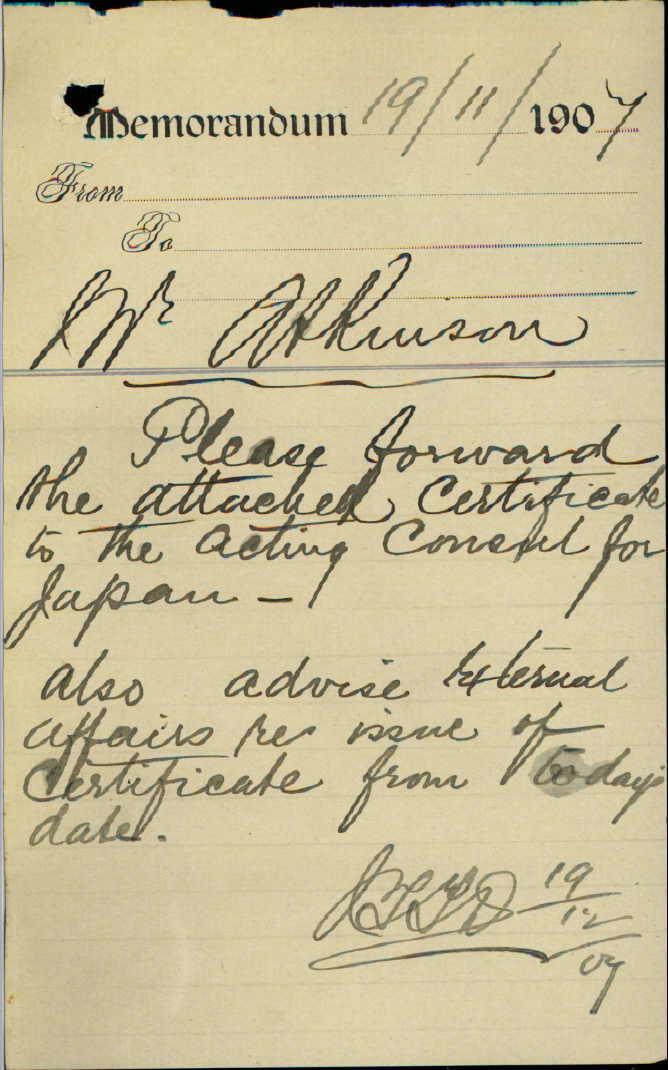 Memorandum 19/11/1907
From
To
Mr Atkinson
Please forward
the attached Certificate
to the Acting Consul for
Japan —
Also advise External
Affairs re issue of
Certificate from todays
date.
19/12/07